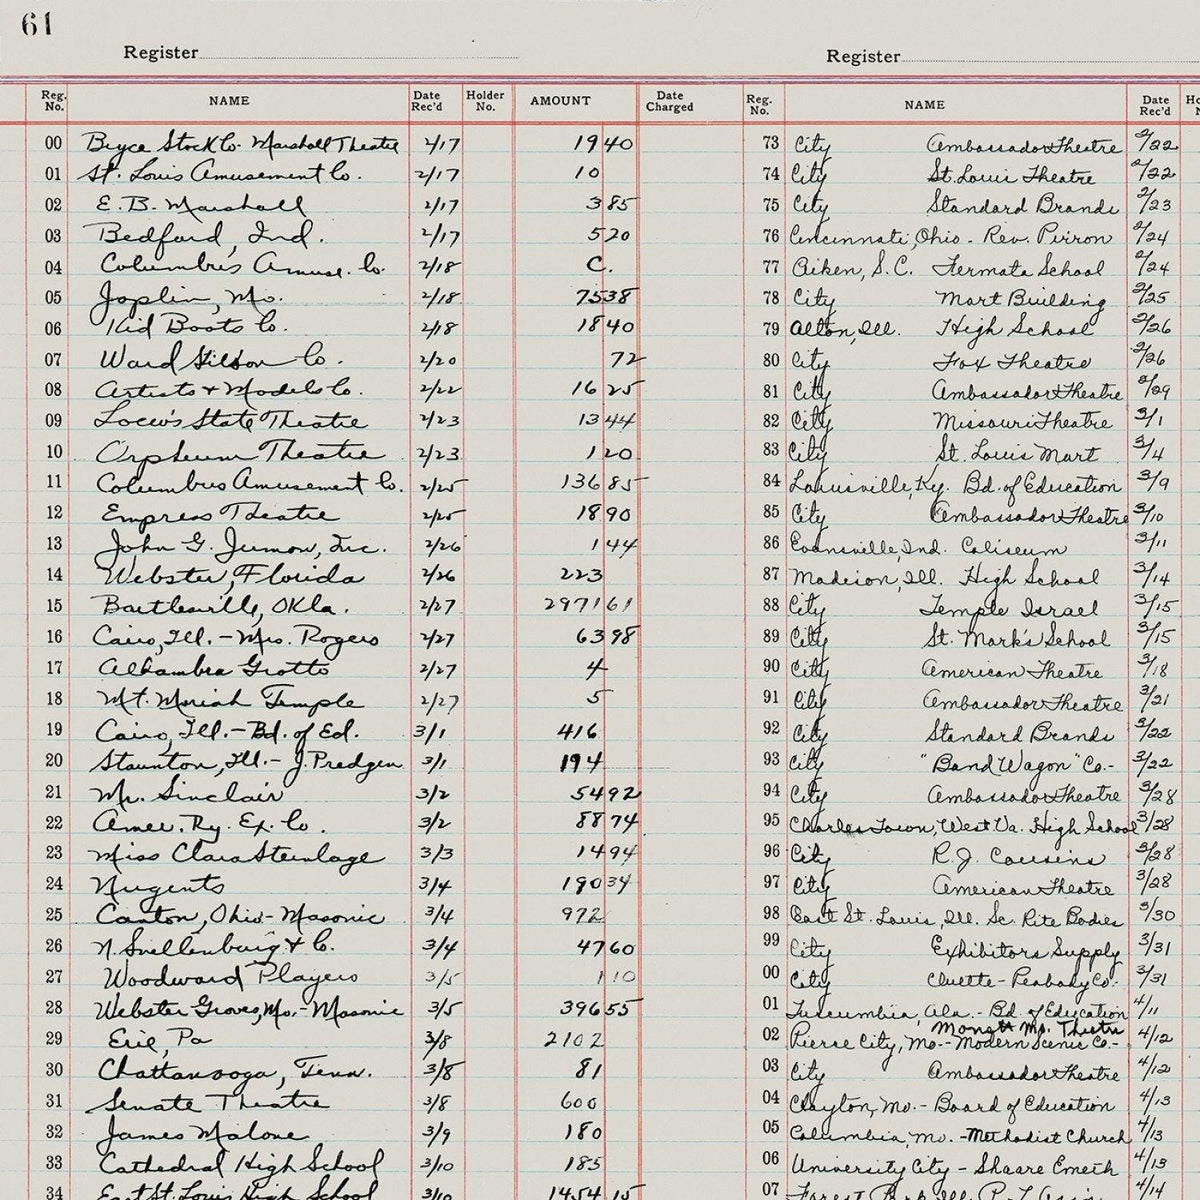 61
Register
Reg. No. NAME Date Rec'd Holder No. AMOUNT Date Charged
00 Bryce Stock Co. Marshall Theatre 2/17 19 40
01 St. Louis Amusement Co. 2/17 10
02 E. B. Marshall 2/17 3 85
03 Bedford, Ind. 2/17 520
04 Columbus Amuse. Co. 2/18 C.
05 Joplin, Mo. 2/18 75 38
06 Kid Boots Co. 2/18 18 40
07 Ward Co. 2/20 72
08 Artists & Models Co. 2/22 16 25
09 Loew's State Theatre 2/23 13 44
10 Orpheum Theatre 2/23 1 20
11 Columbus Amusement Co. 2/25 136 85
12 Empress Theatre 2/25 18 90
13 John G. Inc. 2/26 1 44
14 Webster, Florida 2/26 223
15 Bartlesville, Okla. 2/27 2971 61
16 Cairo, Ill. - Mrs. Rogers 2/27 63 98
17 Alhambra Grotto 2/27 4
18 Mt. Moriah Temple 2/27 5
19 Cairo, Ill. - Bd. of Ed. 3/1 416
20 Staunton, Ill. - J. Predgen 3/1 194
21 Mr. Sinclair 3/2 54 92
22 Amer. Ry. Ex. Co. 3/2 88 74
23 Miss Clara Steinlage 3/3 14 94
24 Nugents 3/4 190 34
25 Canton, Ohio - Masonic 3/4 972
26 N. Snellenburg & Co. 3/4 47 60
27 Woodward Players 3/5 1 10
28 Webster Groves, Mo. - Masonic 3/5 396 55
29 Erie, Pa 3/8 2102
30 Chattanooga, Tenn. 3/8 81
31 Senate Theatre 3/8 600
32 James Malone 3/9 180
33 Cathedral High School 3/10 185
34 East St. Louis High School 3/10 1454 15
Register
Reg. No. NAME Date Rec'd
73 City Ambassador Theatre 2/22
74 City St. Louis Theatre 2/22
75 City Standard Brands 2/23
76 Cincinnati, Ohio - Rev. 2/24
77 Aiken, S.C. Fermata School 2/24
78 City Mart Building 2/25
79 Alton, Ill. High School 2/26
80 City Fox Theatre 2/26
81 City Ambassador Theatre 2/29
82 City Missouri Theatre 3/1
83 City St. Louis Mart 3/4
84 Louisville, Ky. Bd. of Education 3/9
85 City Ambassador Theatre 3/10
86 Evansville, Ind. Coliseum 3/11
87 Madison, Ill. High School 3/14
88 City Temple Israel 3/15
89 City St. Mark's School 3/15
90 City American Theatre 3/18
91 City Ambassador Theatre 3/21
92 City Standard Brands 3/22
93 City "Band Wagon" Co.- 3/22
94 City Ambassador Theatre 3/28
95 Charles Town, West Va. High School 3/28
96 City R. J. Cousins 3/28
97 City American Theatre 3/28
98 East St. Louis, Ill. Sc. Rite Bodies 3/30
99 City Exhibitors Supply 3/31
00 City Cluette - Peabody Co. 3/31
01 Tuscumbia, Ala. - Bd. of Education 4/11
Mo. Theatre
02 Pierce City, Mo. - Modern Scenic Co.- 4/12
03 City Ambassador Theatre 4/12
04 Clayton, Mo. - Board of Education 4/13
05 Columbia, Mo. - Methodist Church 4/13
06 University City - Shaare Emeth 4/13
07 Forest Ill. 4/14